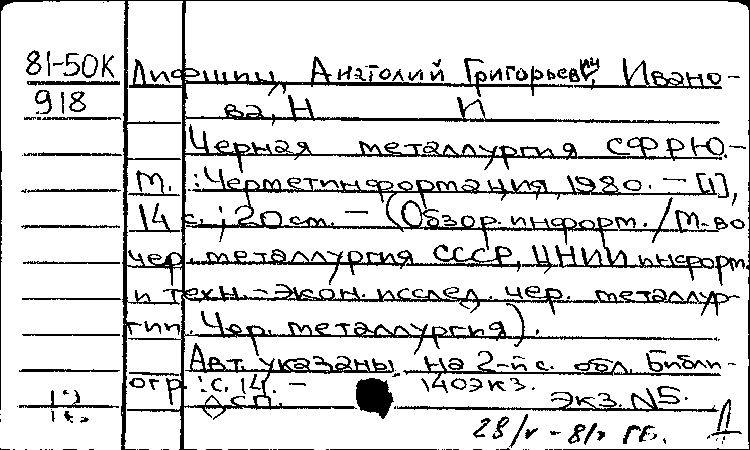 81-50К
918
Лифшиц, Анатолий Григорьевич, Ивано-
ва, Н И
Черная металлургия СФРЮ.-
М. : Черметинформация, 1980. - [1],
14 с.; 20 см. - (Обзор. информ./М-во
чер. металлургия СССР, ЦНИИ информ.
и техн.-экон. исслед. чер. металлур-
гии. Чер. металлургия).
Авт. указаны на 2-й с. обл. Библи-
огр.: с. 14. - 140 экз.
сп. Экз. N5.